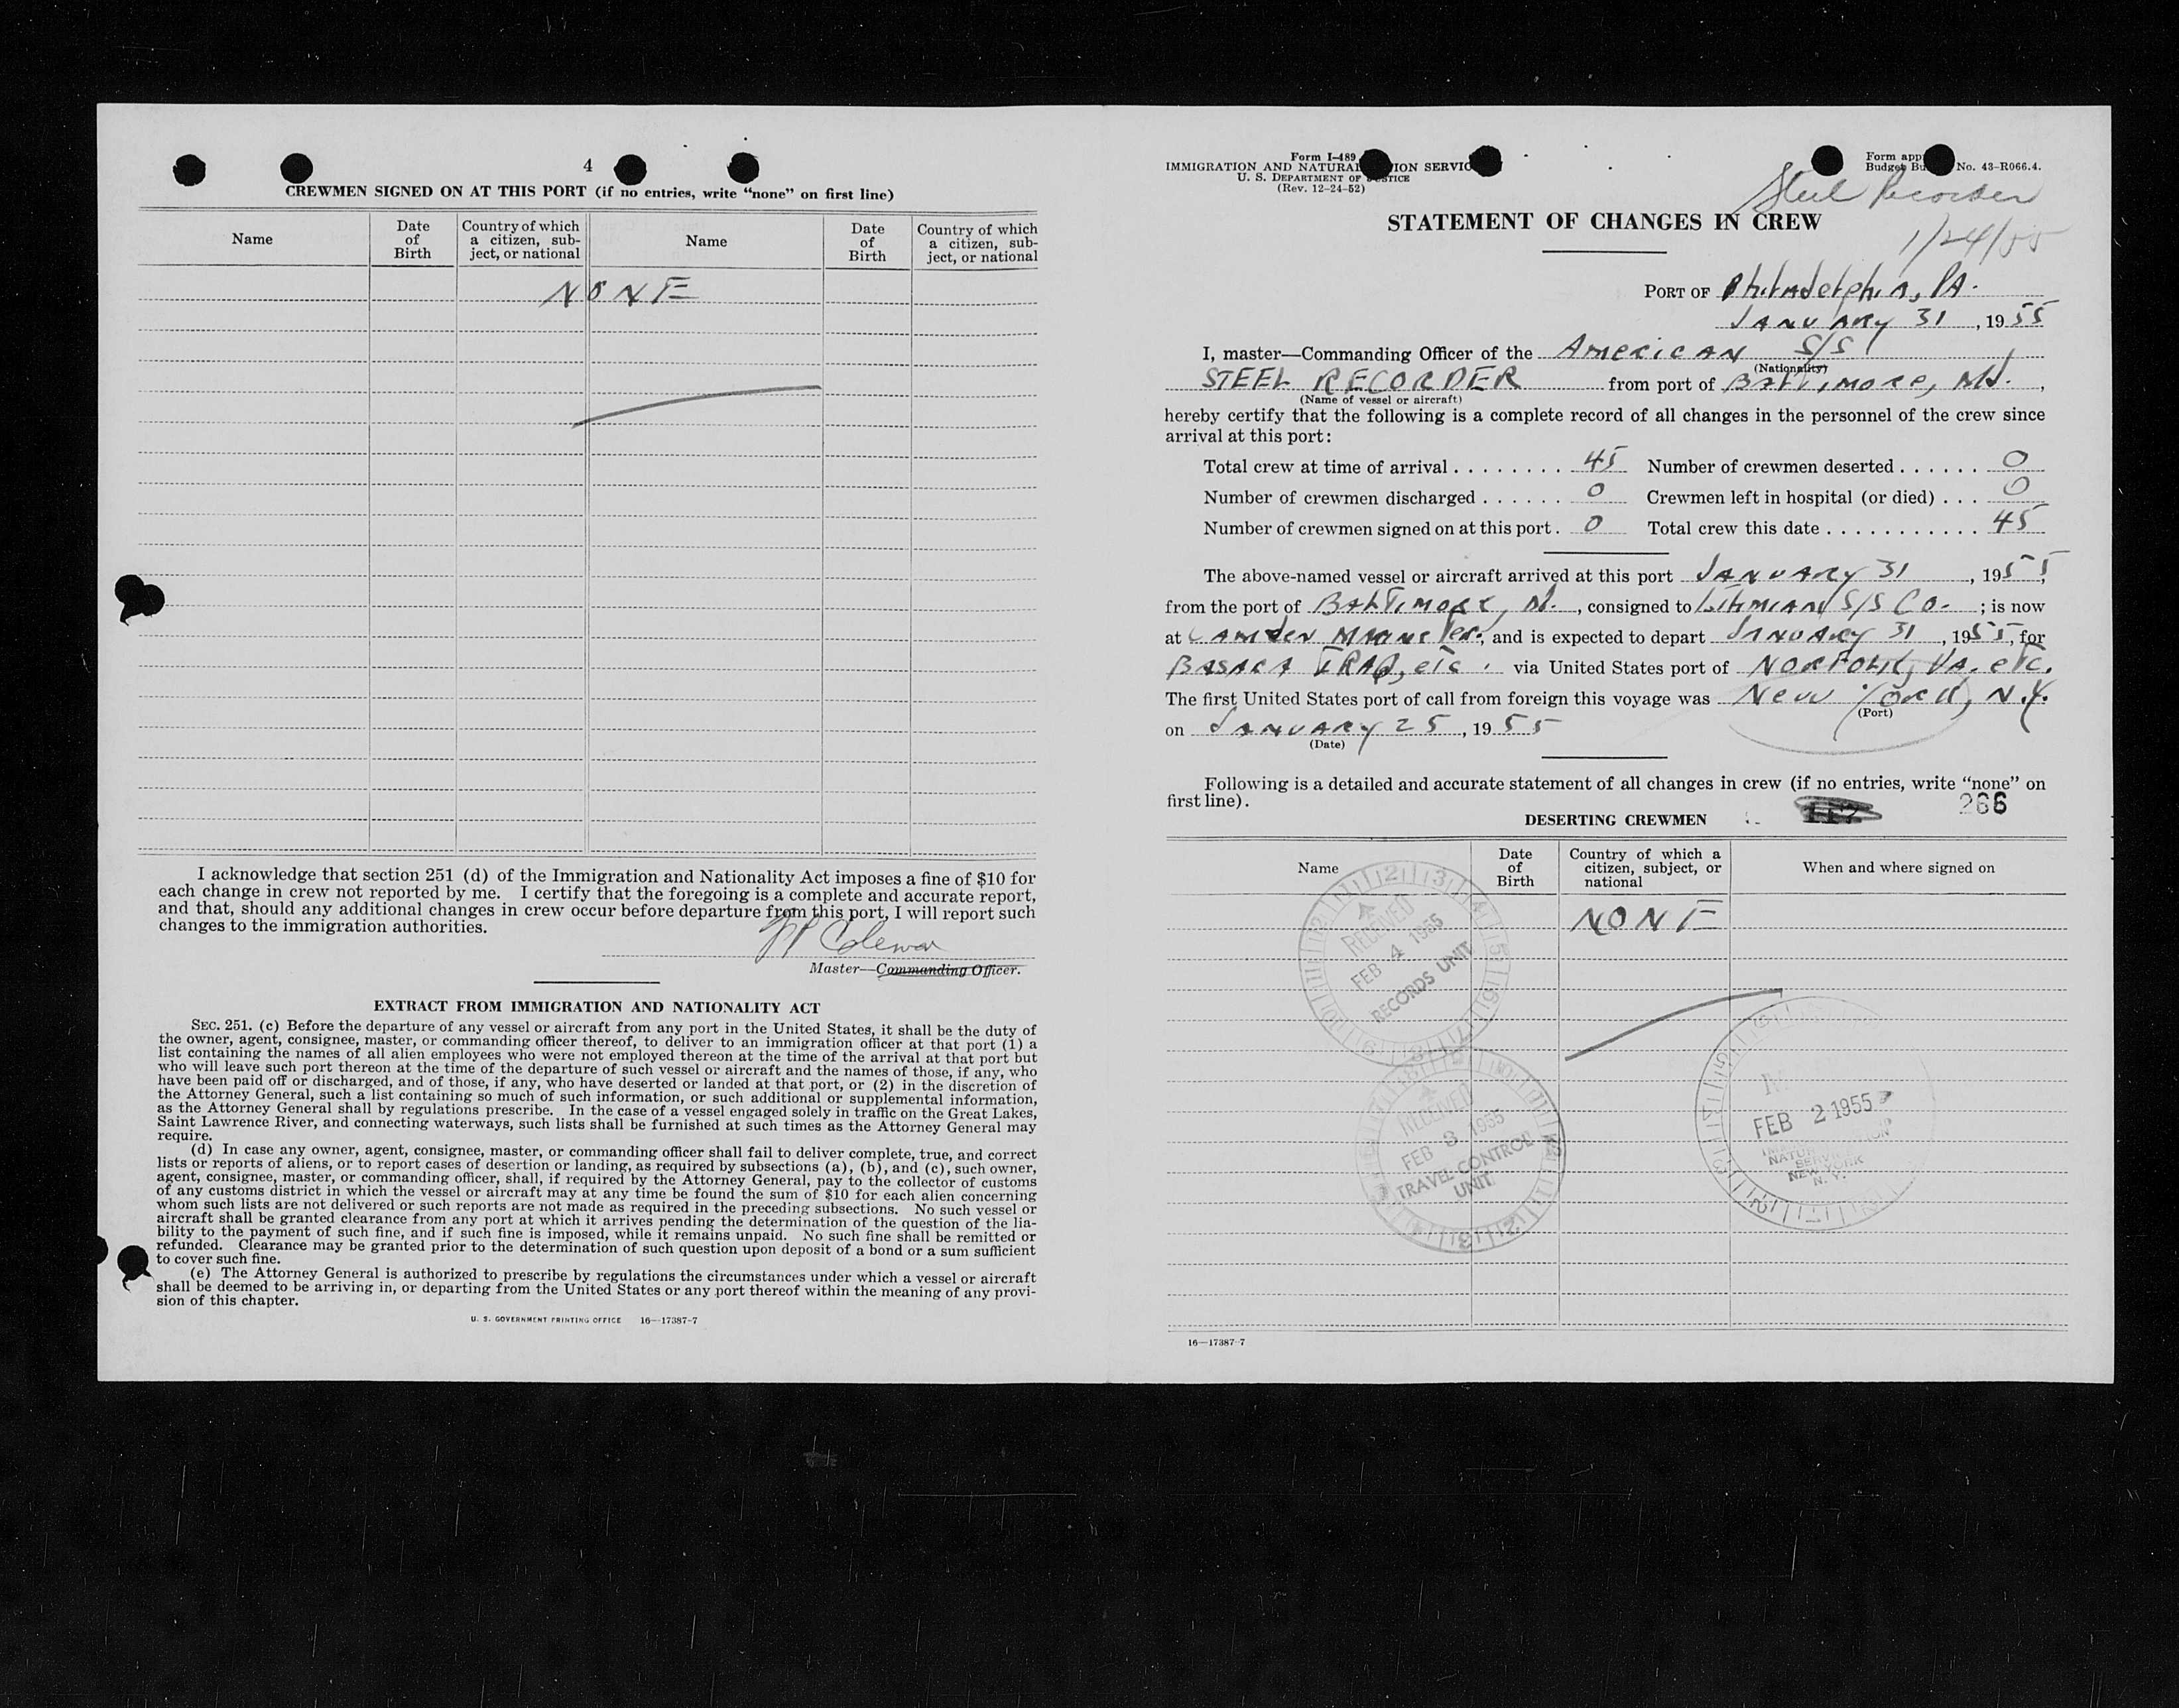 4
CREWMEN SIGNED ON AT THIS PORT (if no entries, write “none” on first line)
Name
Date of Birth
Country of which a citizen, sub- ject, or national
Name
Date of Birth
Country of which a citizen, sub- ject, or national
NONE
I acknowledge that section 251 (d) of the Immigration and Nationality Act imposes a fine of $10 for
each change in crew not reported by me. I certify that the foregoing is a complete and accurate report,
and that, should any additional changes in crew occur before departure from this port, I will report such
changes to the immigration authorities.
Master—Commanding Officer.
EXTRACT FROM IMMIGRATION AND NATIONALITY ACT
SEC. 251. (c) Before the departure of any vessel or aircraft from any port in the United States, it shall be the duty of
the owner, agent, consignee, master, or commanding officer thereof, to deliver to an immigration officer at that port (1) a
list containing the names of all alien employees who were not employed thereon at the time of the arrival at that port but
who will leave such port thereon at the time of the departure of such vessel or aircraft and the names of those, if any, who
have been paid off or discharged, and of those, if any, who have deserted or landed at that port, or (2) in the discretion of
the Attorney General, such a list containing so much of such information, or such additional or supplemental information,
as the Attorney General shall by regulations prescribe. In the case of a vessel engaged solely in traffic on the Great Lakes,
Saint Lawrence River, and connecting waterways, such lists shall be furnished at such times as the Attorney General may
require.
(d) In case any owner, agent, consignee, master, or commanding officer shall fail to deliver complete, true, and correct
lists or reports of aliens, or to report cases of desertion or landing, as required by subsections (a), (b), and (c), such owner,
agent, consignee, master, or commanding officer, shall, if required by the Attorney General, pay to the collector of customs
of any customs district in which the vessel or aircraft may at any time be found the sum of $10 for each alien concerning
whom such lists are not delivered or such reports are not made as required in the preceding subsections. No such vessel or
aircraft shall be granted clearance from any port at which it arrives pending the determination of the question of the lia-
bility to the payment of such fine, and if such fine is imposed, while it remains unpaid. No such fine shall be remitted or
refunded. Clearance may be granted prior to the determination of such question upon deposit of a bond or a sum sufficient
to cover such fine.
(e) The Attorney General is authorized to prescribe by regulations the circumstances under which a vessel or aircraft
shall be deemed to be arriving in, or departing from the United States or any port thereof within the meaning of any provi-
sion of this chapter.
U. S. GOVERNMENT PRINTING OFFICE 16—17387-7
Form I-489
IMMIGRATION AND NATURAL ION SERVIC
U. S. DEPARTMENT OF STICE
(Rev. 12-24-52)
Form app
Budget Bu No. 43-R066.4.
Steel Recorder
1/24/55
STATEMENT OF CHANGES IN CREW
PORT OF Philadelphia, PA.
JANUARY 31, 1955
I, master—Commanding Officer of the AMERICAN S/S
(Nationality)
STEEL RECORDER from port of BALTIMORE, Md.,
(Name of vessel or aircraft)
hereby certify that the following is a complete record of all changes in the personnel of the crew since
arrival at this port:
Total crew at time of arrival . . . . . . . . 45 Number of crewmen deserted . . . . . . 0
Number of crewmen discharged . . . . . . 0 Crewmen left in hospital (or died) . . . 0
Number of crewmen signed on at this port . 0 Total crew this date . . . . . . . . . . . 45
The above-named vessel or aircraft arrived at this port JANUARY 31, 1955,
from the port of BALTIMORE, Md., consigned to S/S Co.; is now
at CAMDEN MARINE Ter., and is expected to depart JANUARY 31, 1955, for
BASARA IRAQ, etc. via United States port of NORFOLK, VA. etc.
The first United States port of call from foreign this voyage was New York, N.Y.
(Port)
on JANUARY 25, 1955
(Date)
Following is a detailed and accurate statement of all changes in crew (if no entries, write “none” on
first line).
266
DESERTING CREWMEN
Name
Date of Birth
Country of which a citizen, subject, or national
When and where signed on
NONE
RECEIVED
FEB 4 1955
RECORDS UNIT
RECEIVED
FEB 3 1955
TRAVEL CONTROL
UNIT
FEB 2 1955
NEW YORK
N. Y.
16—17387-7